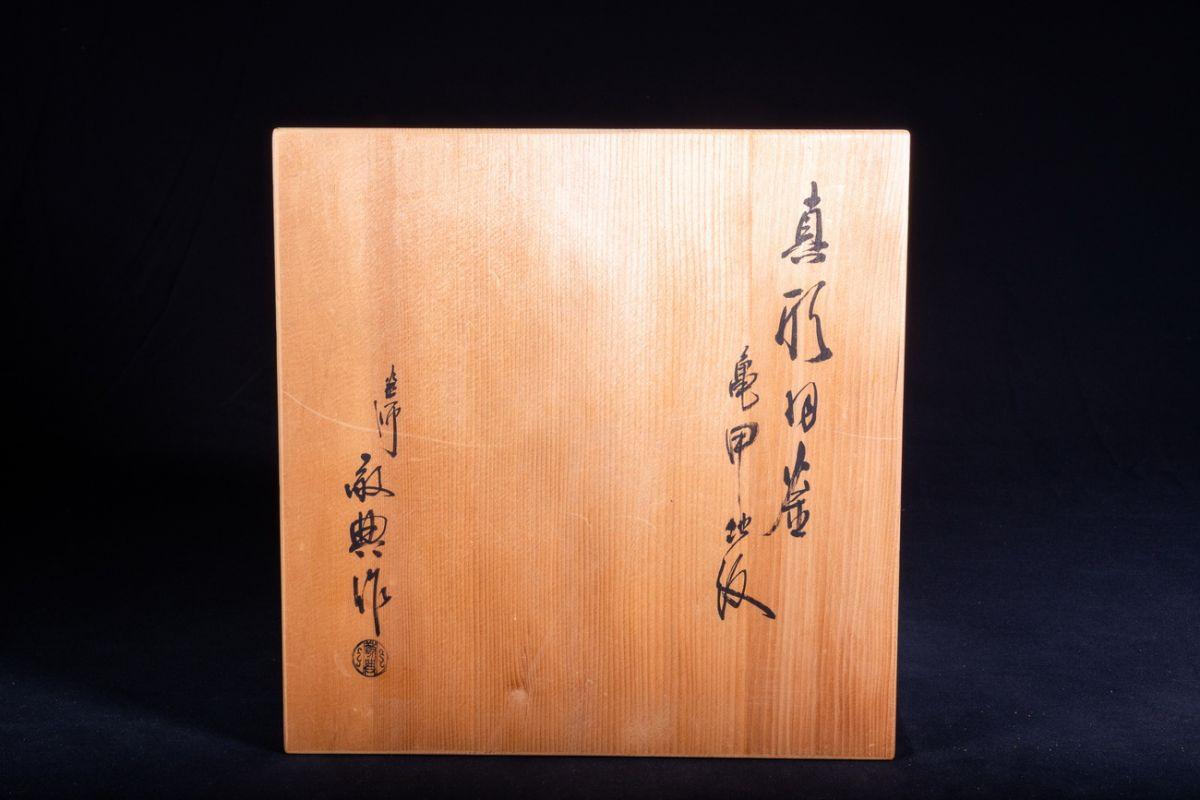 真形羽釜
亀甲地紋
釜師
敬典作